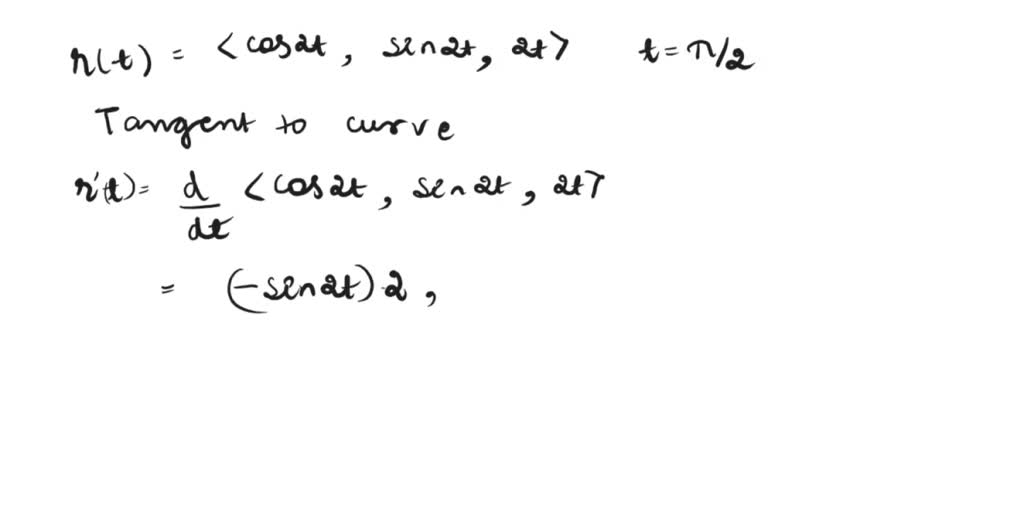 r(t) = <cos2t, sin2t, 2t> t = π/2
Tangent to curve
r'(t) = d/dt <cos2t, sin2t, 2t>
= (-sin2t)2,